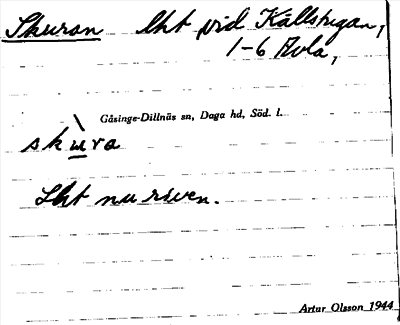 Skuran lht vid Källstugan,
1-6 Avla,
Gåsinge-Dillnäs sn, Daga hd, Söd. l.
skùra
Lht nu riven.
Artur Olsson 1944